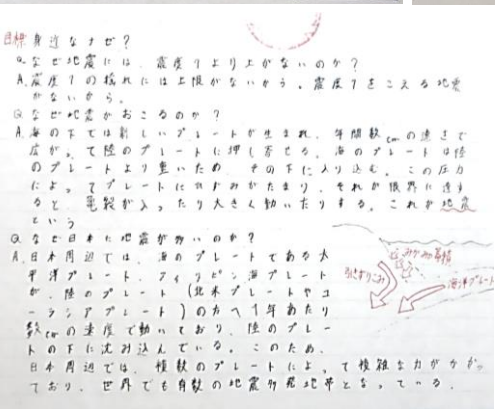 目標 身近なナゼ？
Q. なぜ地震には、震度7より上がないのか？
A. 震度7の揺れには上限がないから。震度7をこえる地震
がないから。
Q なぜ地震がおこるのか？
A. 海の下では新しいプレートが生まれ、年間数cmの速さで
広がって陸のプレートに押し寄せる。海のプレートは陸
のプレートより重いため その下に入り込む。この圧力
によってプレートにひずみがたまり、それが限界に達す
ると 亀裂が入ったり大きく動いたりする。これが地震
という
Q なぜ日本に地震が多いのか？
A. 日本周辺では、海のプレートである太
平洋プレート、フィリピン海プレート
が、陸のプレート（北米プレートやユ
ーラシアプレート）の方へ1年あたり
数cmの速度で動いており、陸のプレー
トの下に沈み込んでいる。このため、
日本周辺では、複数のプレートによって複雑な力がかかっ
ており、世界でも有数の地震多発地帯となっている。
ひずみの蓄積
引きずりこみ
海洋プレート